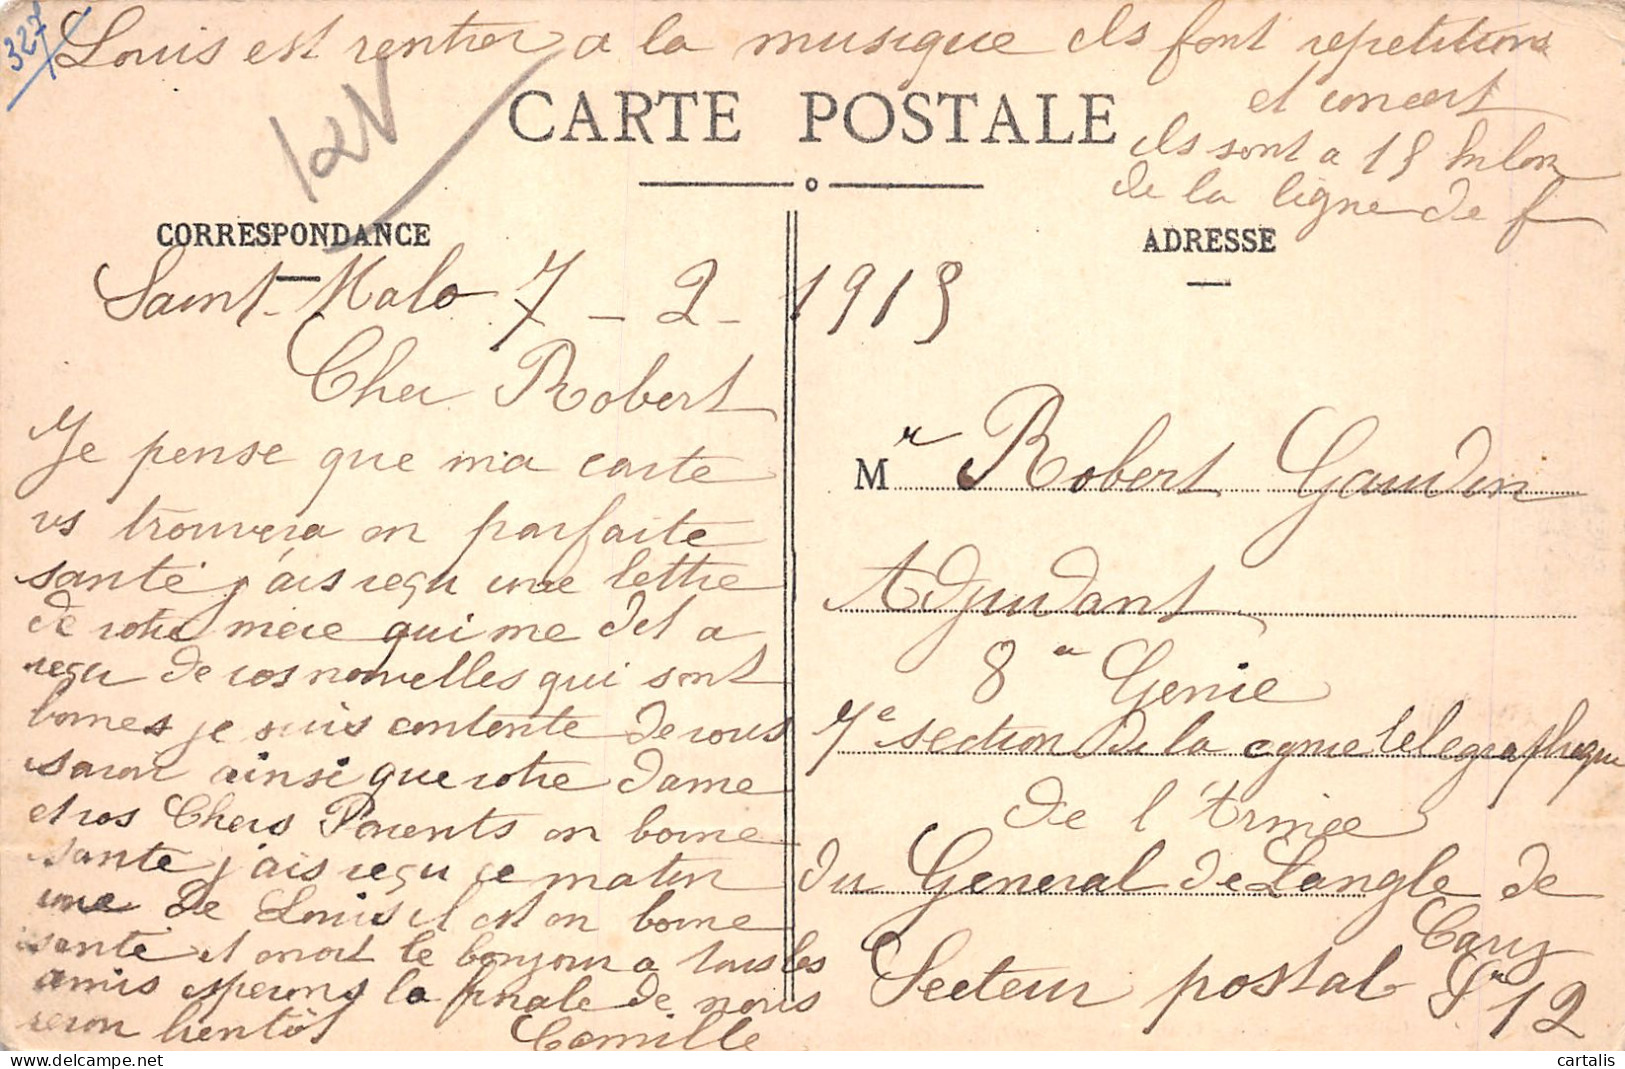 327
Louis est rentrer a la musique ils font repetitions
et concert
ils sont a 15 kilom
de la ligne de f
CARTE POSTALE
CORRESPONDANCE
ADRESSE
Saint-Malo 7-2-1915
Cher Robert
Je pense que ma carte
vs trouvera en parfaite
santé j'ais reçu une lettre
de votre mère qui me dit a
reçu de vos nouvelles qui sont
bonnes je suis contente de vous
savoir ainsi que votre dame
et vos Chers Parents en bonne
sante j'ais reçu ce matin
une de Louis il est en bonne
sante et envoit le bonjour a tous les
amis esperons la finale de nous
revoir bientôt
Camille
Mr Robert Gaudin
Adjudant
8e Genie
7e section de la cgnie telegraphique
de l'Armée
du General de Langle de
Cary
Secteur postal Sr 12
cartalis